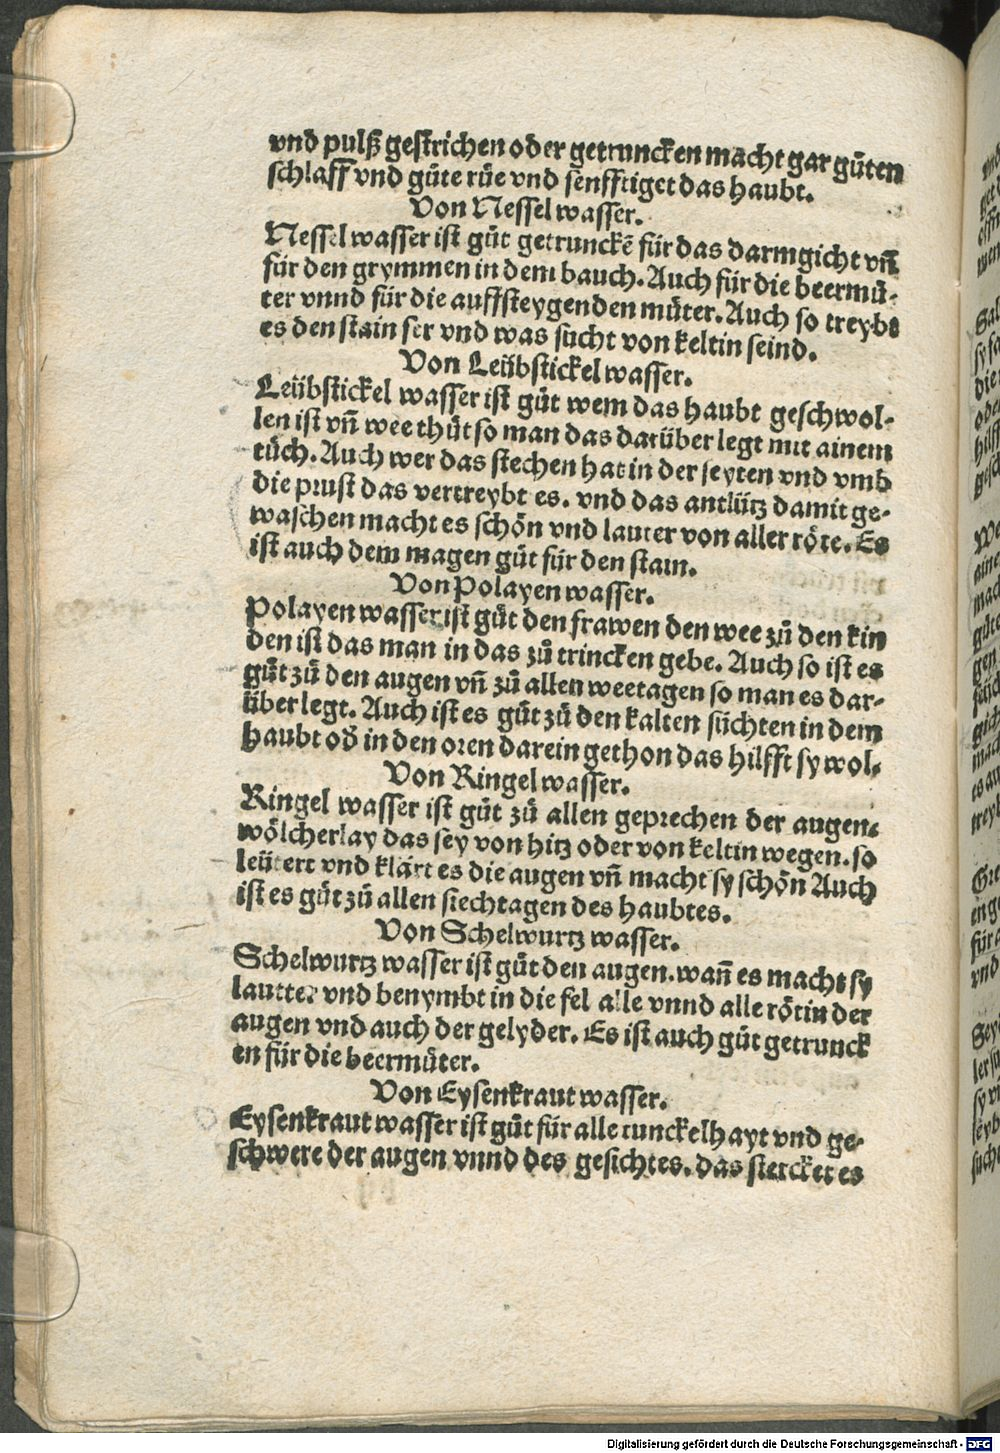 vnd pulß gestrichen oder getruncken macht gar gůten
schlaff vnd gůte růe vnd senfftiget das haubt.
Von Nessel wasser.
Nessel wasser ist gůt getrunckē für das darmgicht vñ
für den grymmen in dem bauch. Auch für die beermů-
ter vnnd für die auffsteygenden můter. Auch so treybt
es den stain ser vnd was sücht von keltin seind.
Von Leübstickel wasser.
Leübstickel wasser ist gůt wem das haubt geschwol-
len ist vñ wee thůt so man das darüber legt mit ainem
tůch. Auch wer das stechen hat in der seyten vnd vmb
die prust das vertreybt es. vnd das antlütz damit ge-
waschen macht es schön vnd lauter von aller röte. Es
ist auch dem magen gůt für den stain.
Von Polayen wasser.
Polayen wasser ist gůt den frawen den wee zů den kin
den ist das man in das zů trincken gebe. Auch so ist es
gůt zů den augen vñ zů allen weetagen so man es dar-
über legt. Auch ist es gůt zů den kalten süchten in dem
haubt od̄ in den oren darein gethon das hilfft sy wol.
Von Ringel wasser.
Ringel wasser ist gůt zů allen geprechen der augen.
wölcherlay das sey von hitz oder von keltin wegen. so
leütert vnd klärt es die augen vñ macht sy schön Auch
ist es gůt zů allen siechtagen des haubtes.
Von Schelwurtz wasser.
Schelwurtz wasser ist gůt den augen. wañ es macht sy
lautter vnd benymbt in die fel alle vnnd alle rötin der
augen vnd auch der gelyder. Es ist auch gůt getrunck
en für die beermůter.
Von Eysenkraut wasser.
Eysenkraut wasser ist gůt für alle tunckelhayt vnd ge-
schwere der augen vnnd des gesichtes. das stercket es
Digitalisierung gefördert durch die Deutsche Forschungsgemeinschaft - DFG